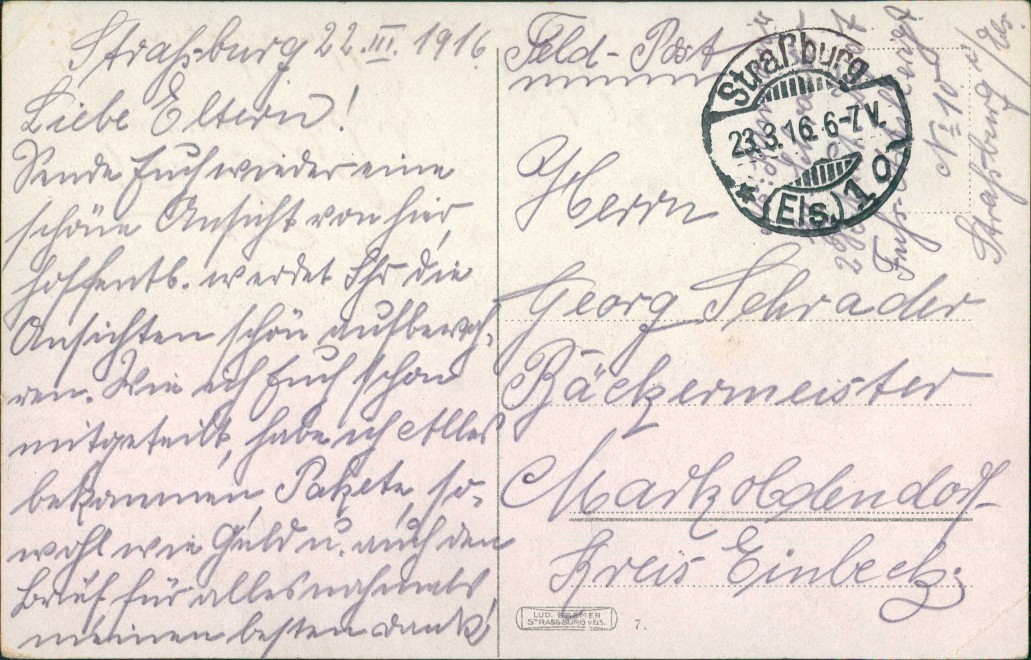 Straßburg 22. III. 1916.
Liebe Eltern!
Sende Euch wieder eine
schöne Ansicht von hier,
hoffentl. werdet Ihr die
Ansichten schön aufbewah-
ren. Wie ich Euch schon
mitgeteilt, habe ich Alles
bekommen, Pakete, so-
wohl wie Geld u. auch den
Brief für alles nahmals
meinen besten Dank!
Feld-Post
Straßburg
23.3.16. 6-7V.
* (Els.) 1 g
No 10
Straßburg i/Els.
Herrn
Georg Schrader
Bäckermeister
Markoldendorf
Kreis Einbeck.
LUD. BREMER
STRASSBURG i/ELS.
7.